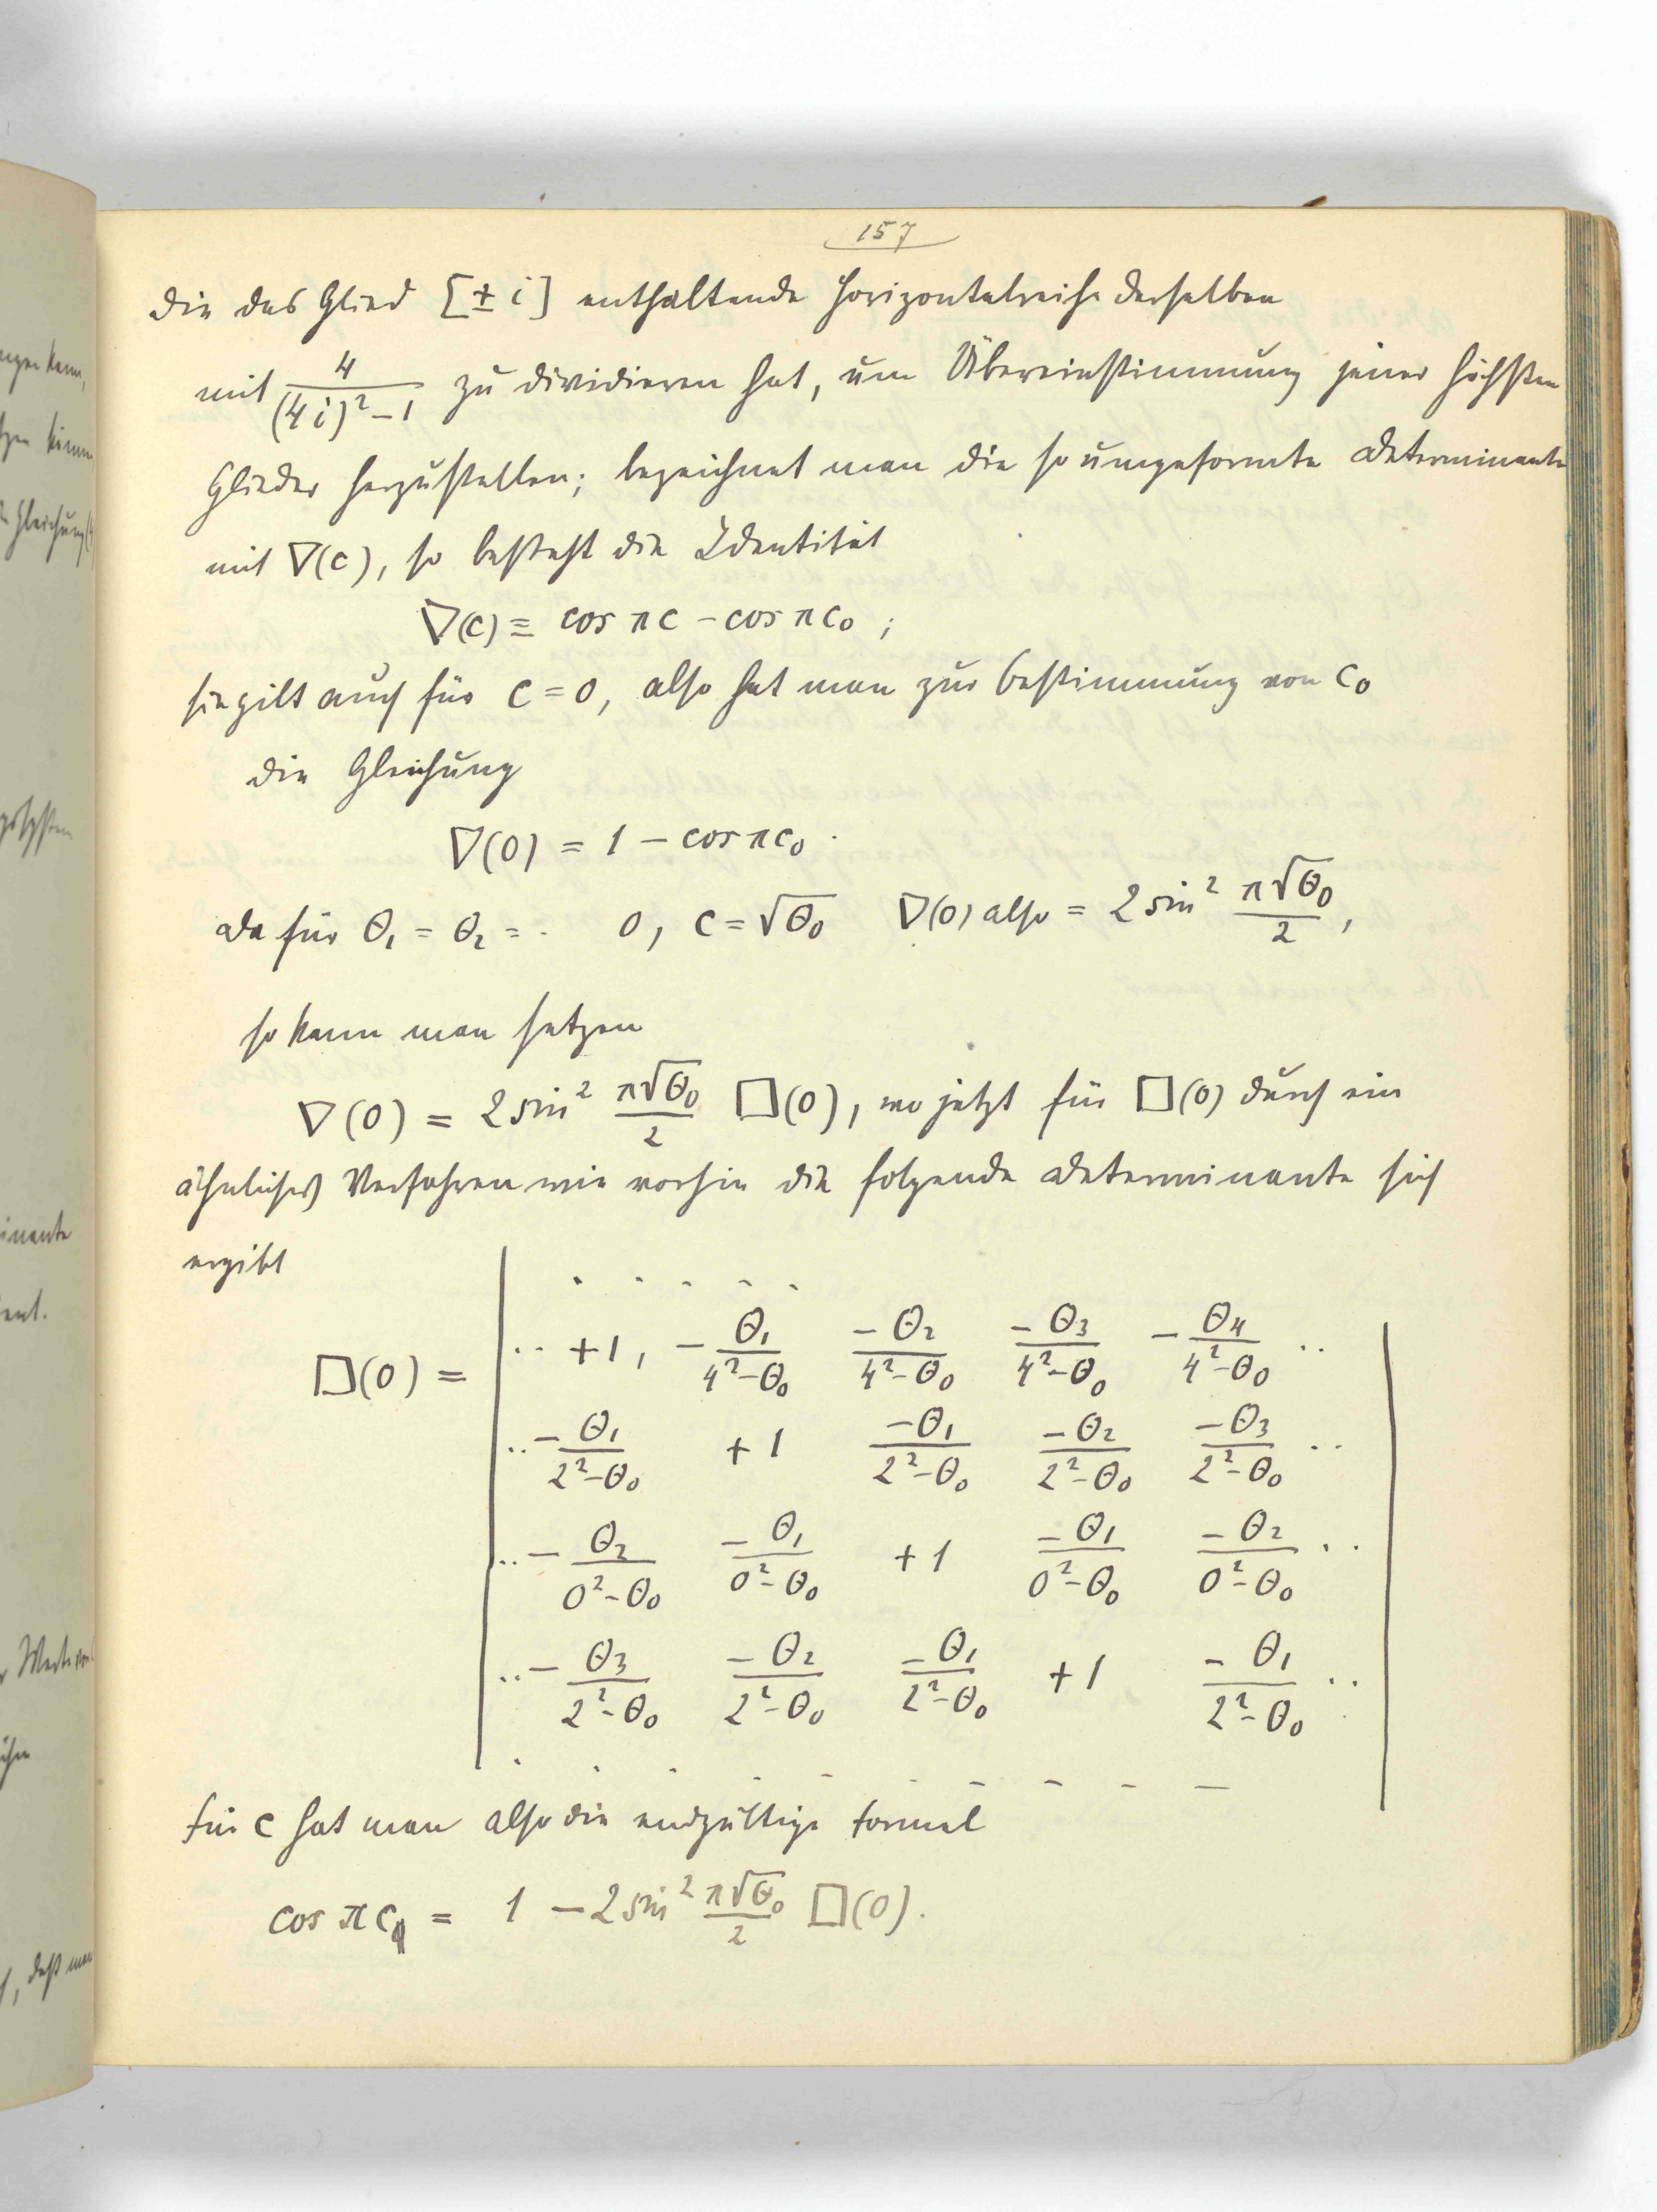 157
die das Glied [± i] enthaltende Horizontalreihe derselben
mit 4/((4i)²−1) zu dividieren hat, um Übereinstimmung jener höchsten
Glieder herzustellen; bezeichnet man die so umgeformte Determinante
mit ∇(c), so besteht die Identität
∇(c) ≡ cos πc − cos πc₀ ;
sie gilt auch für c = 0, also hat man zur Bestimmung von c₀
die Gleichung
∇(0) = 1 − cos πc₀ .
Da für Θ₁ = Θ₂ = ·  0, c = √Θ₀  ∇(0) also = 2 sin² π√Θ₀/2 ,
so kann man setzen
∇(0) = 2 sin² π√Θ₀/2 □(0), wo jetzt für □(0) durch ein
ähnliches Verfahren wie vorhin die folgende Determinante sich
ergibt
. . . . .
□(0) = | ·· +1, −Θ₁/(4²−Θ₀) −Θ₂/(4²−Θ₀) −Θ₃/(4²−Θ₀) −Θ₄/(4²−Θ₀) ·· |
·· −Θ₁/(2²−Θ₀) +1 −Θ₁/(2²−Θ₀) −Θ₂/(2²−Θ₀) −Θ₃/(2²−Θ₀) ··
·· −Θ₂/(0²−Θ₀) −Θ₁/(0²−Θ₀) +1 −Θ₁/(0²−Θ₀) −Θ₂/(0²−Θ₀) ··
·· −Θ₃/(2²−Θ₀) −Θ₂/(2²−Θ₀) −Θ₁/(2²−Θ₀) +1 −Θ₁/(2²−Θ₀) ··
. . . . . . . . . .
für c hat man also die endgültige Formel
cos πc = 1 − 2 sin² π√Θ₀/2 □(0).